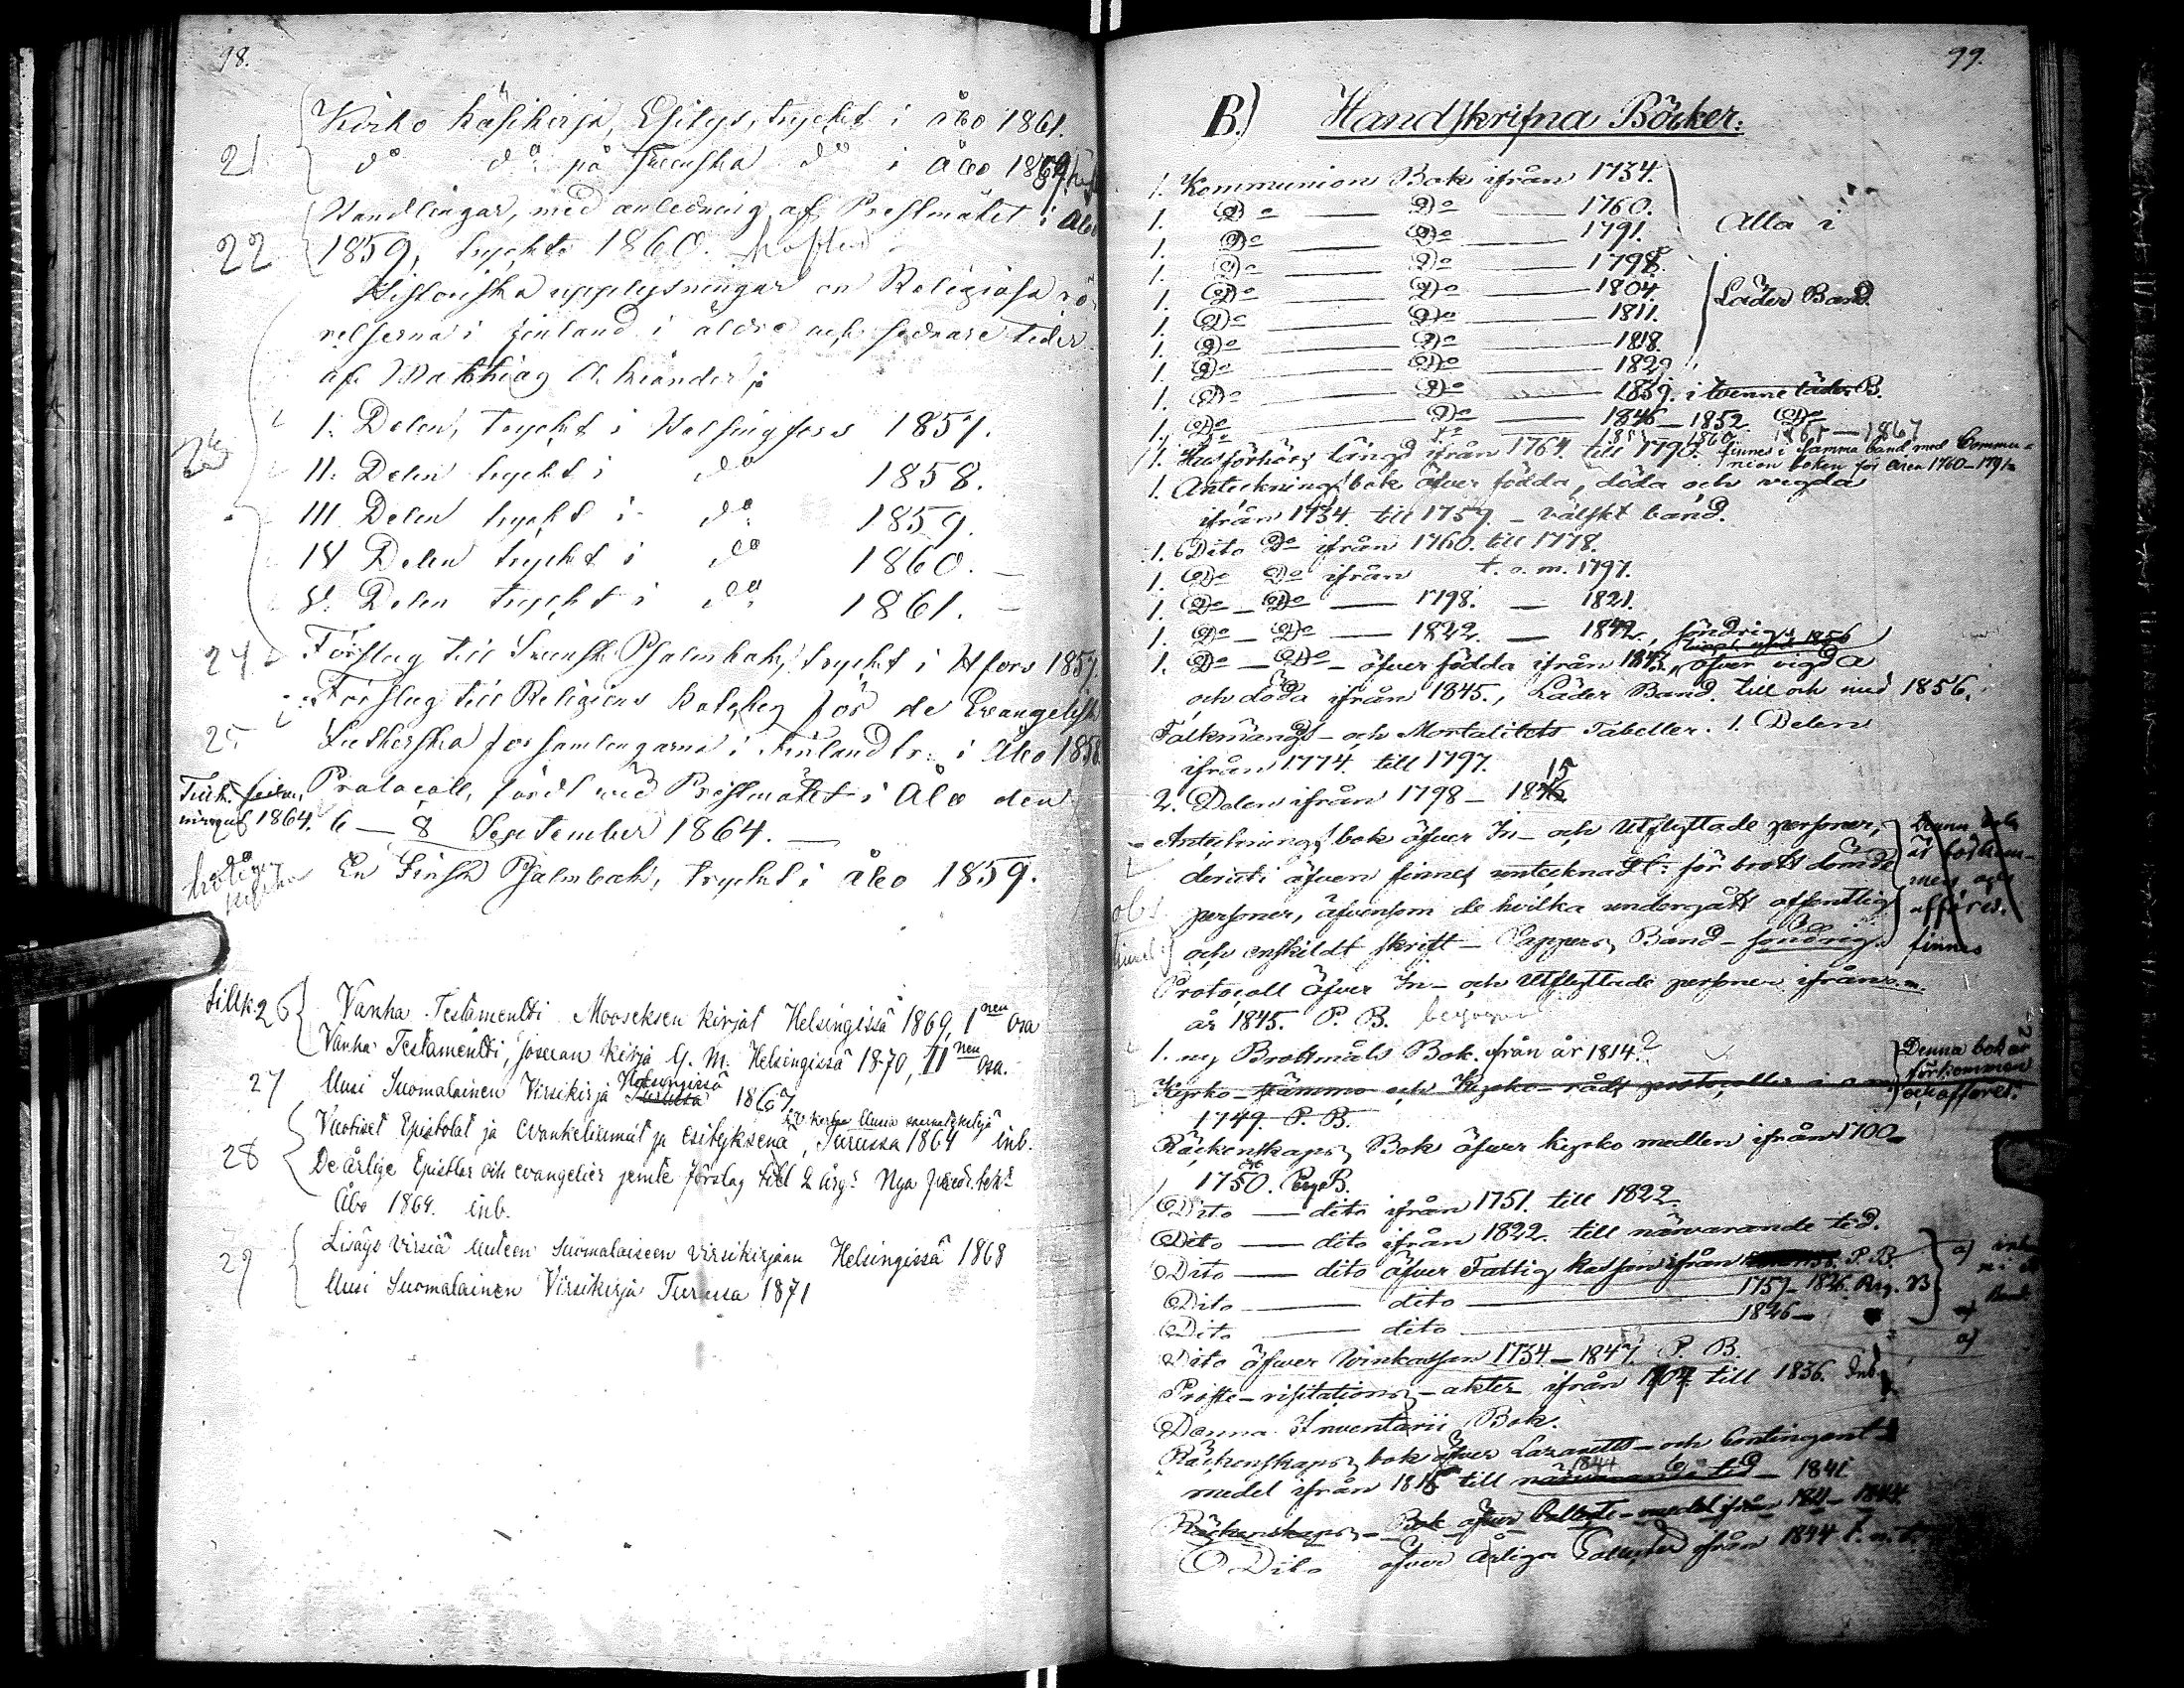 98.
Kirko Käsikirja, Esitys, tryckt i Åbo 1861.
21 do do på Svenska do i Åbo 1859
Handlingar, med anledning af Prestmötet i Åbo
22 1859, tryckte 1860. häftad
Historiska upplysningar om Religiösa rö-
relserna i Finland i äldre och sednare tider
af Matthias Akiander:
I. Delen, tryckt i Helsingfors 1857.
II. Delen tryckt i do 1858.
III. Delen tryckt i do 1859.
IV Delen tryckt i do 1860.
V. Delen tryckt i do 1861.
24 Förslag till Svensk Psalmbok, tryckt i Hfors 1857.
Förslag till Religions Kateches för de Evangelisk
25 Lutherska församlingarna i Finland tr. i Åbo 1856
Protocoll, fördt vid Prestmötet i Åbo den
1864. 6 — 8 September 1864. —
En Finsk Psalmbok, tryckt i Åbo 1859.
Sillk: 26 Vanha Testamentti Mooseksen kirjat Helsingissä 1869, I nen Osa
Vanha Testamentti, Josuan Kirja y. m. Helsingissä 1870, II nen Osa.
27 Uusi Suomalainen Virsikirja Turussa Helsingissä 1867.
Vuotiset Epistolat ja evankeliumit ja esityksenä, Turussa 1864 inb.
28 De årlige Epistler och evangelier jemte förslag till 2 årgr Nya pred. texter
Åbo 1864. inb.
29 Lisäys Virsiä Uuteen Suomalaiseen Virsikirjaan Helsingissä 1868
Uusi Suomalainen Virsikirja Turussa 1871
99.
B.) Handskrifna Böcker:
1. Kommunion Bok ifrån 1734.
1. Do — Do — 1760.
1. Do — Do — 1791. Alla i
1. Do — Do — 1798.
1. Do — Do — 1804. Läder Band.
1. Do — Do — 1811.
1. Do — Do — 1818.
1. Do — Do — 1829.
1. Do — Do — 1839. i tvenne läder B.
1. Do — Do — 1846 — 1852. Do
1860. 1861 — 1867
1. Husförhörs längd ifrån 1764. till 1790. finnes i samma band med Commu-
nion boken för åren 1760–1791
1. Anteckningsbok öfver födda, döda och vigda
ifrån 1734. till 1759. – välskt band.
1. Dito Do ifrån 1760. till 1778.
1. Do Do ifrån t. o. m. 1797.
1. Do — Do — 1798. — 1821.
1. Do — Do — 1822. — 1842. söndrig
1. Do — Do — öfver födda ifrån 1843., öfver vigda
och döda ifrån 1845., Läder Band. till och med 1856.
Folkmängds- och Mortalitets Tabeller. 1. Delen
ifrån 1774. till 1797.
2. Delen ifrån 1798 – 1815
Anteckningsbok öfver In- och Utflyttade personer, Denna bok
deruti äfven finnes antecknadt: för brott dömde är förkom-
personer, äfvensom de hvilka undergått offentlig men och
afföres.
och enskildt skrift – Pappers Band – söndrig. finnes
Protocoll öfver In- och Utflyttade personer ifrån
år 1845. P. B.
1. ny Brottmåls Bok. från år 1814. Denna bok är
Kyrko-stämmo och Kyrko-råds protocoller förkommen
1749. P. B. och afföres.
Räkenskaps Bok öfver kyrko medlen ifrån 1700–
1750. P. B.
Dito — dito ifrån 1751. till 1822.
Dito — dito ifrån 1822. till närvarande tid.
Dito — dito öfver Fattig kassan ifrån P. B. a)
Dito — dito — 1757–1826. B
Dito — dito — 1826– a)
Dito öfver Vinkassan 1734 — 1847. P. B.
Proste-visitations-akter ifrån till 1836. Inb.
Denna Inventarii Bok.
Räkenskaps bok öfver Lazaretts- och Contingent-
medel ifrån 1815 till närvarande tid 1841
Räkenskaps-Bok öfver Collecte-medel ifrån 1841–1844.
Dito öfver årliga Collecter ifrån 1844